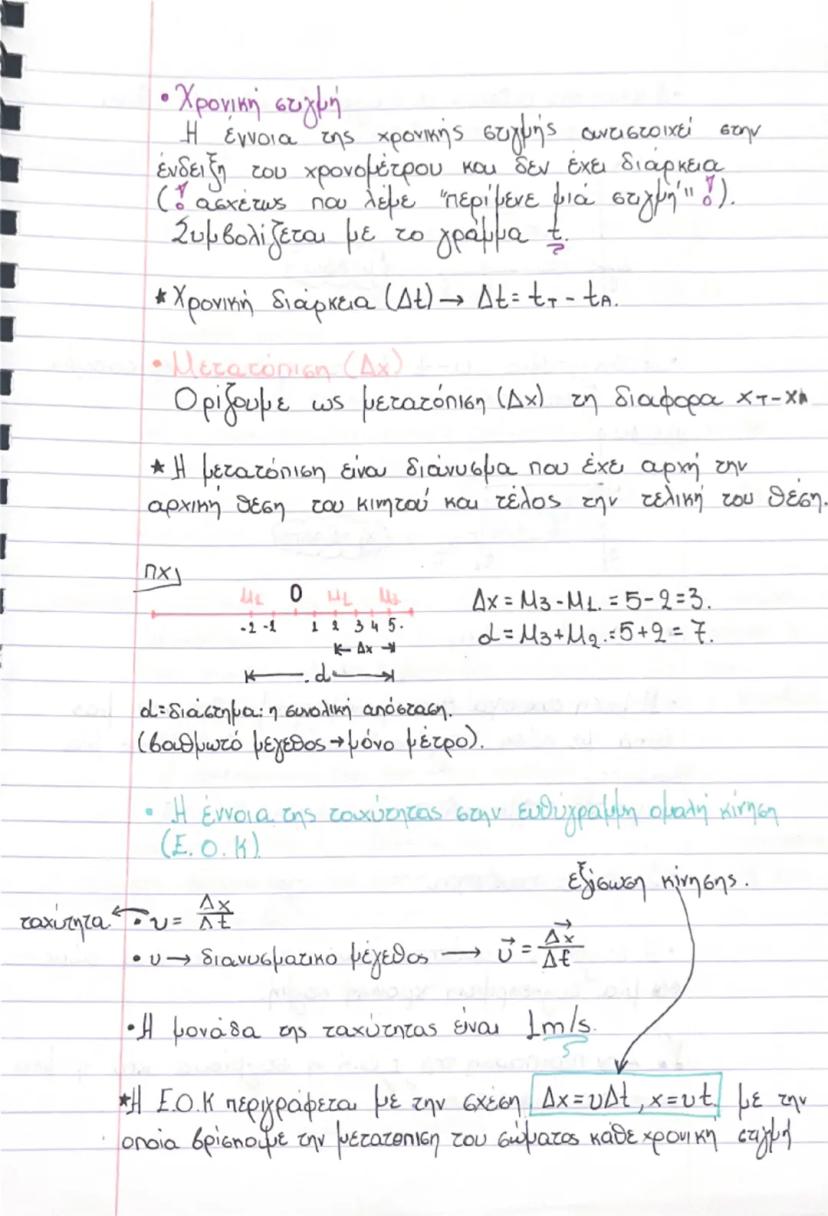 • Χρονική στιγμή
Η έννοια της χρονικής στιγμής αντιστοιχεί στην
ένδειξη του χρονομέτρου και δεν έχει διάρκεια
(! ασχέτως που λέμε "περίμενε μιά στιγμή" !).
Συμβολίζεται με το γράμμα t.
* Χρονική διάρκεια (Δt) → Δt = tτ - tA.
• Μετατόπιση (Δx)
Ορίζουμε ως μετατόπιση (Δx) τη διαφορα xτ - xA
* Η μετατόπιση είναι διάνυσμα που έχει αρχή την
αρχική θέση του κινητού και τέλος την τελική του θέση.
πχ)
Μ2 0 Μ1 Μ3
-2 -1 1 2 3 4 5.
Δx
d
Δx = Μ3 - Μ1. = 5 - 2 = 3.
d = Μ3 + Μ2. = 5 + 2 = 7.
d = διάστημα: η συνολική απόσταση.
(βαθμωτό μέγεθος → μόνο μέτρο).
• Η έννοια της ταχύτητας στην ευθύγραμμη ομαλή κίνηση
(Ε.Ο.Κ)
εξίσωση κίνησης.
ταχύτητα ← • υ = Δx/Δt
• υ → διανυσματικό μέγεθος → υ⃗ = Δx⃗/Δt
• Η μονάδα της ταχύτητας είναι 1m/s.
* Η Ε.Ο.Κ περιγράφεται με την σχέση Δx = υΔt, x = υt. με την
οποία βρίσκουμε την μετατοπιση του σώματος κάθε χρονική στιγμή